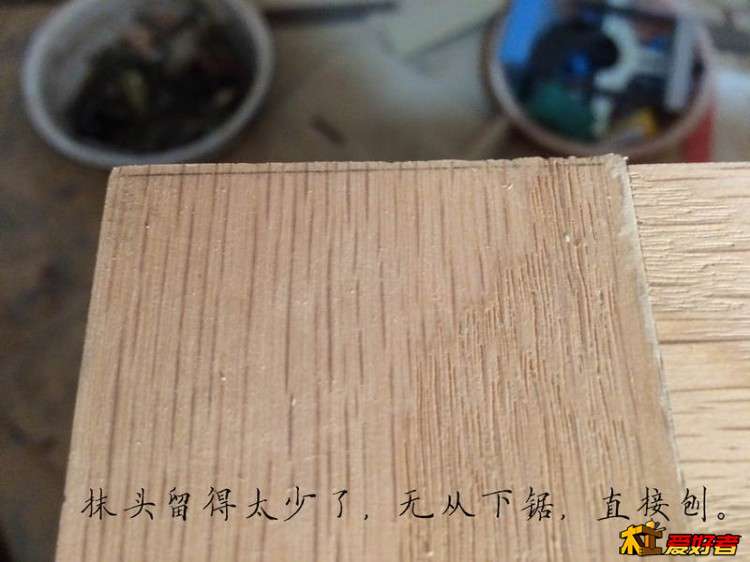 抹头留得太少了，无从下锯，直接刨。
木工爱好者